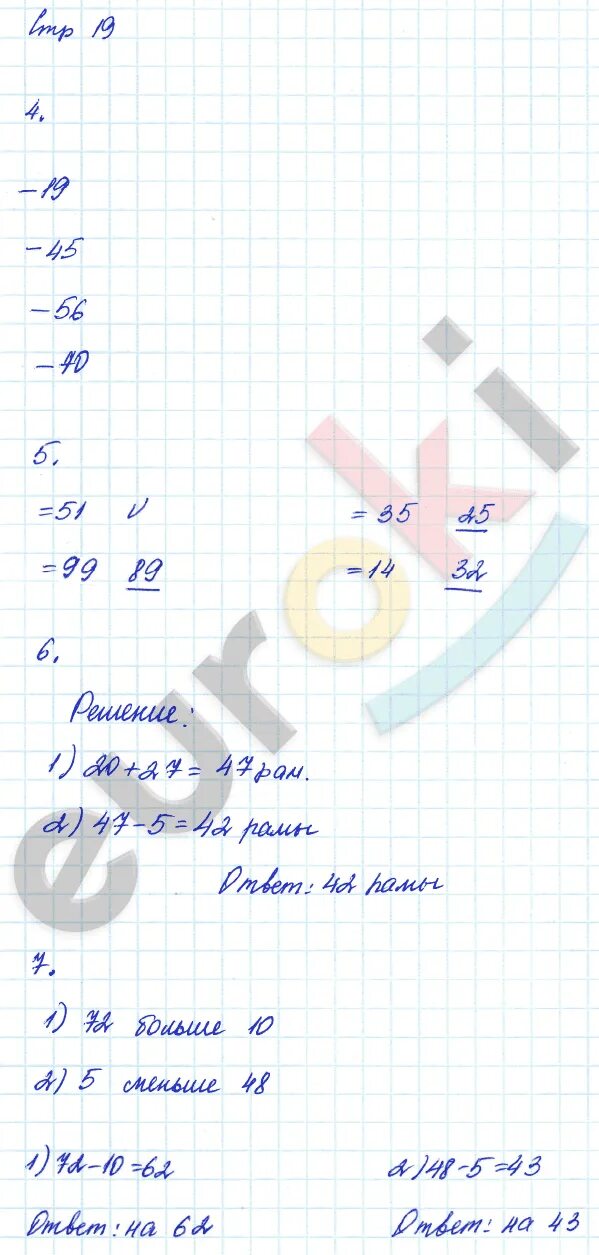 Стр 19
4.
-19
-45
-56
-70
5.
=51 v = 35 25
=99 89 =14 32
6.
Решение:
1) 20+27= 47 рам.
2) 47-5=42 рамы
Ответ: 42 рамы
7.
1) 72 больше 10
2) 5 меньше 48
1) 72-10=62 2) 48-5=43
Ответ: на 62 Ответ: на 43
euroki